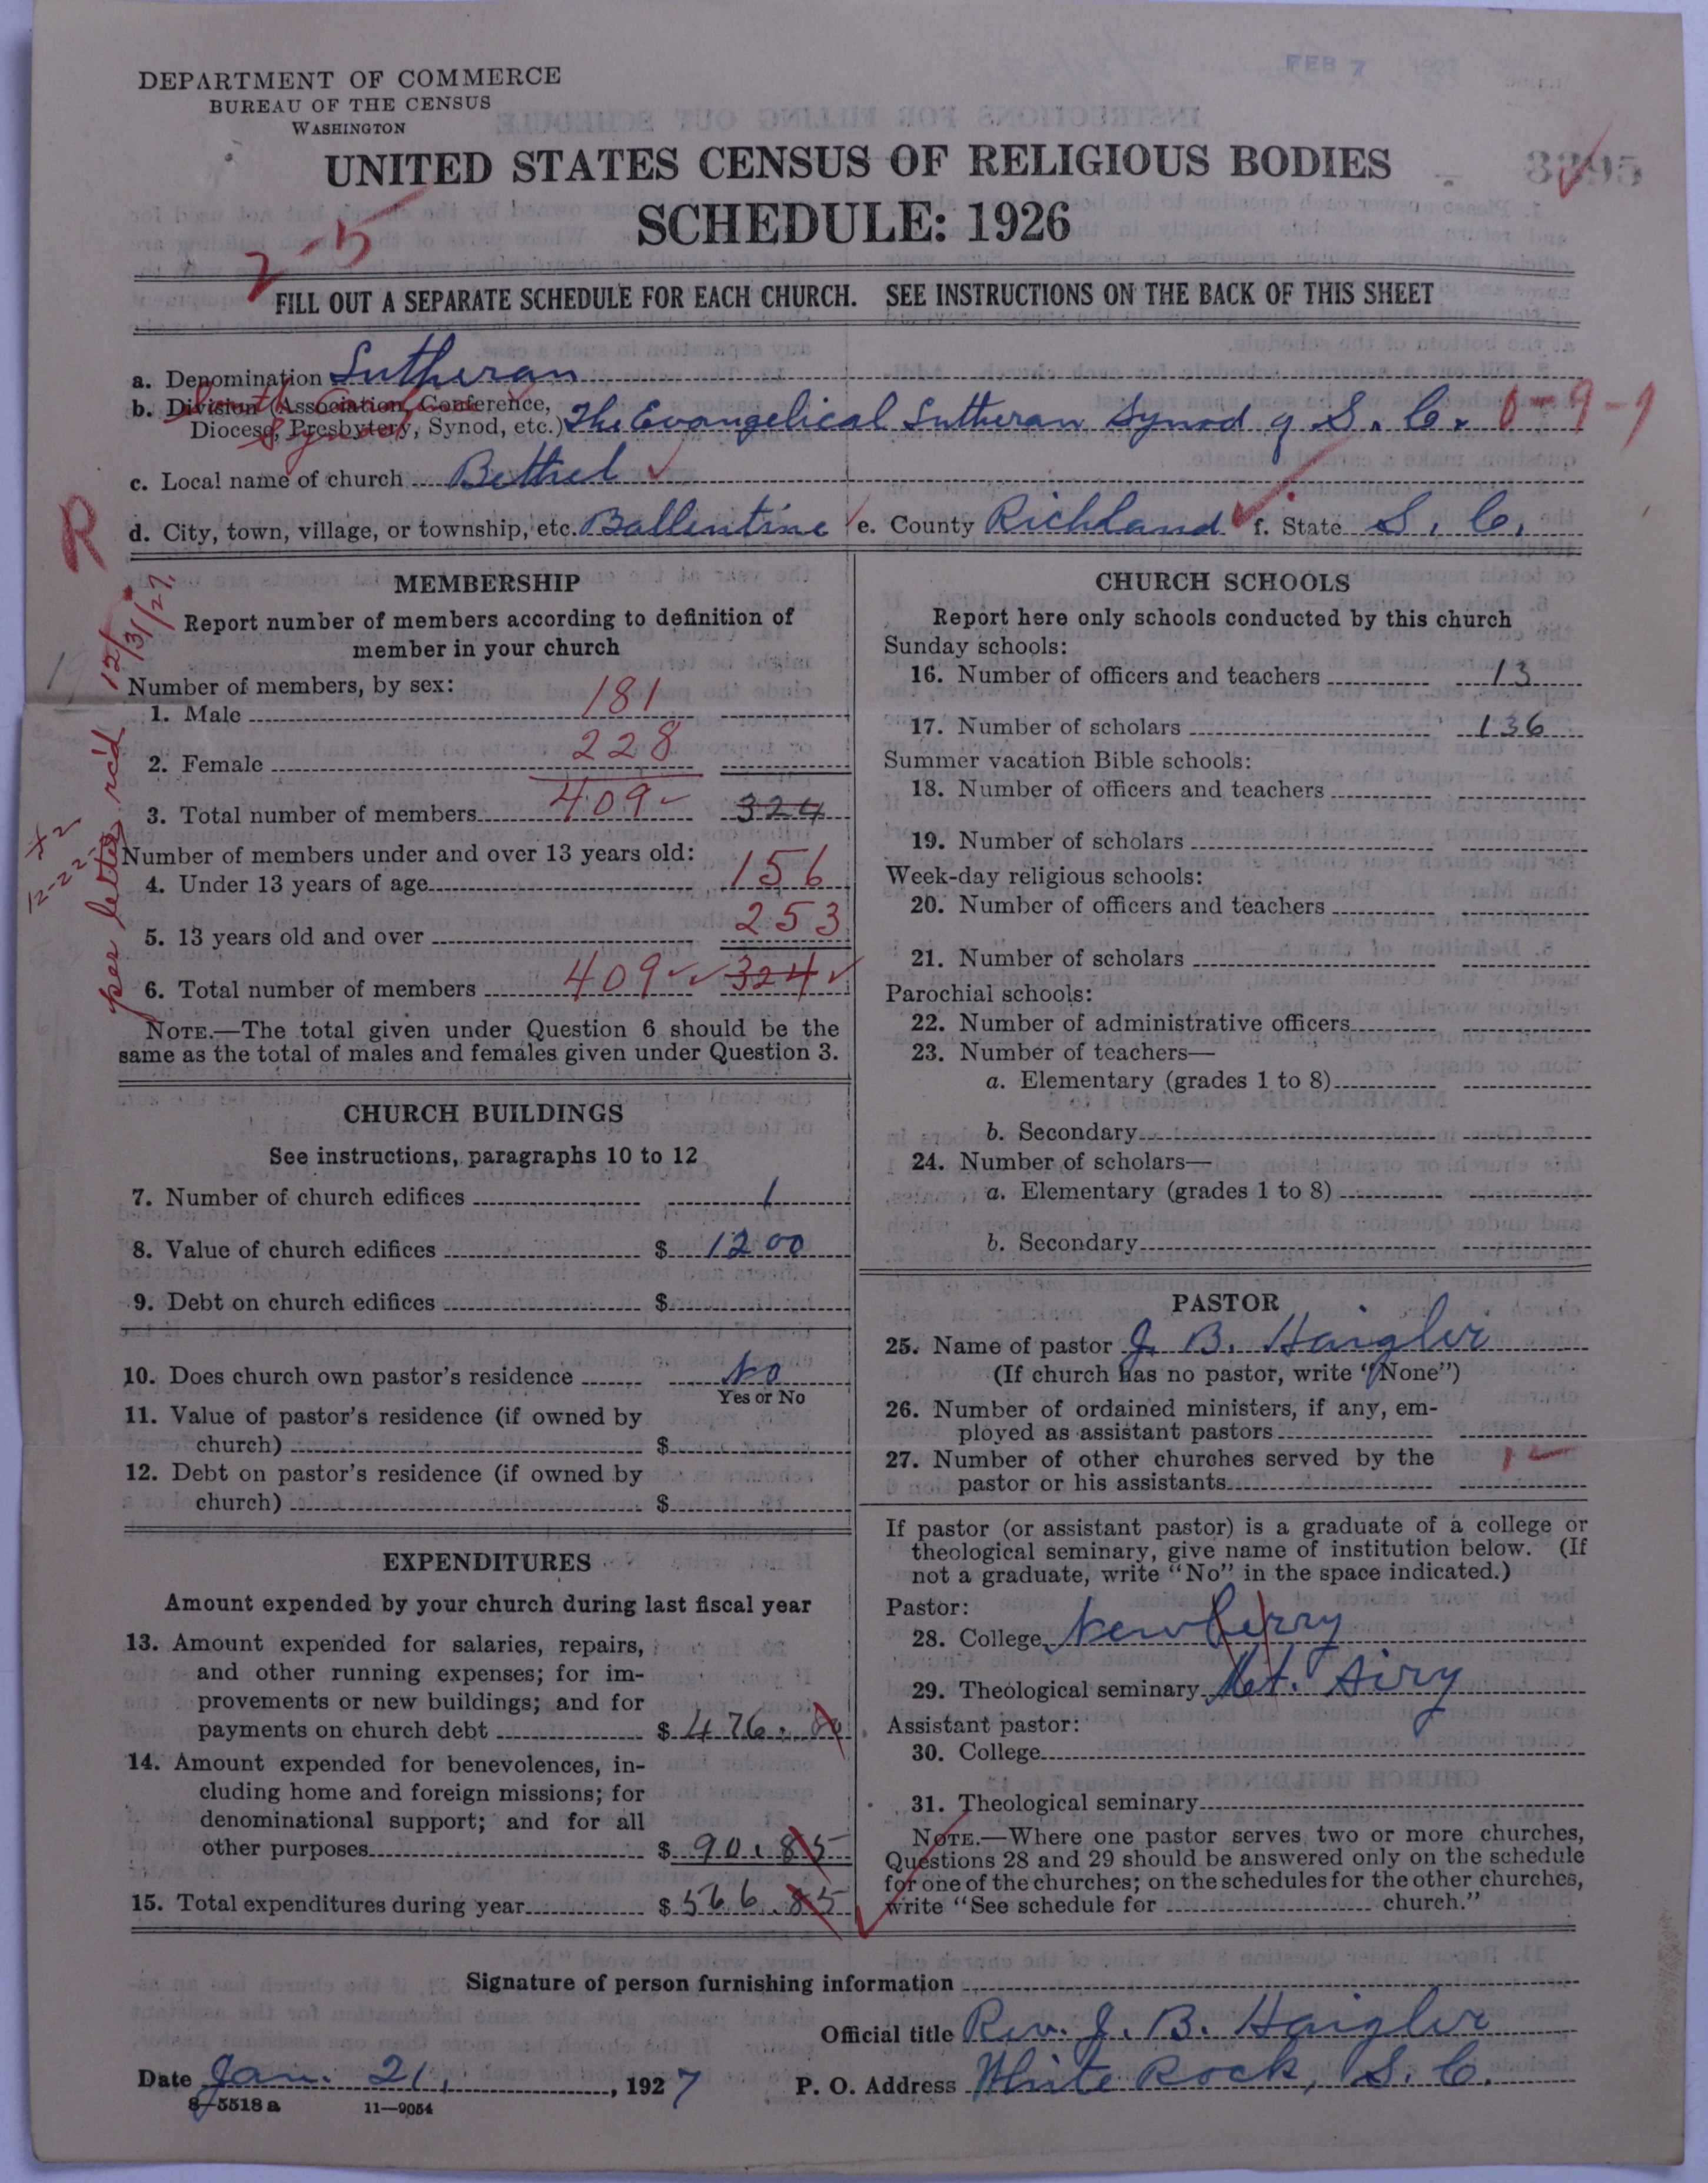 FEB 7 1927
DEPARTMENT OF COMMERCE
BUREAU OF THE CENSUS
WASHINGTON
UNITED STATES CENSUS OF RELIGIOUS BODIES
3395
SCHEDULE: 1926
2-5
FILL OUT A SEPARATE SCHEDULE FOR EACH CHURCH. SEE INSTRUCTIONS ON THE BACK OF THIS SHEET
a. Denomination Lutheran
b. Division (Association, Conference, Diocese, Presbytery, Synod, etc.) The Evangelical Lutheran Synod of S. C. 0-9-9
South Carolina Synod
c. Local name of church Bethel
d. City, town, village, or township, etc. Ballentine e. County Richland f. State S. C.
R
per letter rc'd 12/31/27
MEMBERSHIP
Report number of members according to definition of
member in your church
Number of members, by sex:
1. Male 181
2. Female 228
3. Total number of members 409 324
Number of members under and over 13 years old:
4. Under 13 years of age 156
5. 13 years old and over 253
6. Total number of members 409 324
NOTE.—The total given under Question 6 should be the
same as the total of males and females given under Question 3.
CHURCH BUILDINGS
See instructions, paragraphs 10 to 12
7. Number of church edifices 1
8. Value of church edifices $ 1200
9. Debt on church edifices $
10. Does church own pastor's residence No
Yes or No
11. Value of pastor's residence (if owned by
church) $
12. Debt on pastor's residence (if owned by
church) $
EXPENDITURES
Amount expended by your church during last fiscal year
13. Amount expended for salaries, repairs,
and other running expenses; for im-
provements or new buildings; and for
payments on church debt $ 476.
14. Amount expended for benevolences, in-
cluding home and foreign missions; for
denominational support; and for all
other purposes $ 90.85
15. Total expenditures during year $ 566.85
CHURCH SCHOOLS
Report here only schools conducted by this church
Sunday schools:
16. Number of officers and teachers 13
17. Number of scholars 136
Summer vacation Bible schools:
18. Number of officers and teachers
19. Number of scholars
Week-day religious schools:
20. Number of officers and teachers
21. Number of scholars
Parochial schools:
22. Number of administrative officers
23. Number of teachers—
a. Elementary (grades 1 to 8)
b. Secondary
24. Number of scholars—
a. Elementary (grades 1 to 8)
b. Secondary
PASTOR
25. Name of pastor J. B. Haigler
(If church has no pastor, write "None")
26. Number of ordained ministers, if any, em-
ployed as assistant pastors
27. Number of other churches served by the
pastor or his assistants 1
If pastor (or assistant pastor) is a graduate of a college or
theological seminary, give name of institution below. (If
not a graduate, write "No" in the space indicated.)
Pastor:
28. College Newberry
29. Theological seminary Mt. Airy
Assistant pastor:
30. College
31. Theological seminary
NOTE.—Where one pastor serves two or more churches,
Questions 28 and 29 should be answered only on the schedule
for one of the churches; on the schedules for the other churches,
write "See schedule for church."
Signature of person furnishing information
Official title Rev. J. B. Haigler
Date Jan. 21, 1927 P. O. Address White Rock, S. C.
8-5518a 11—9054